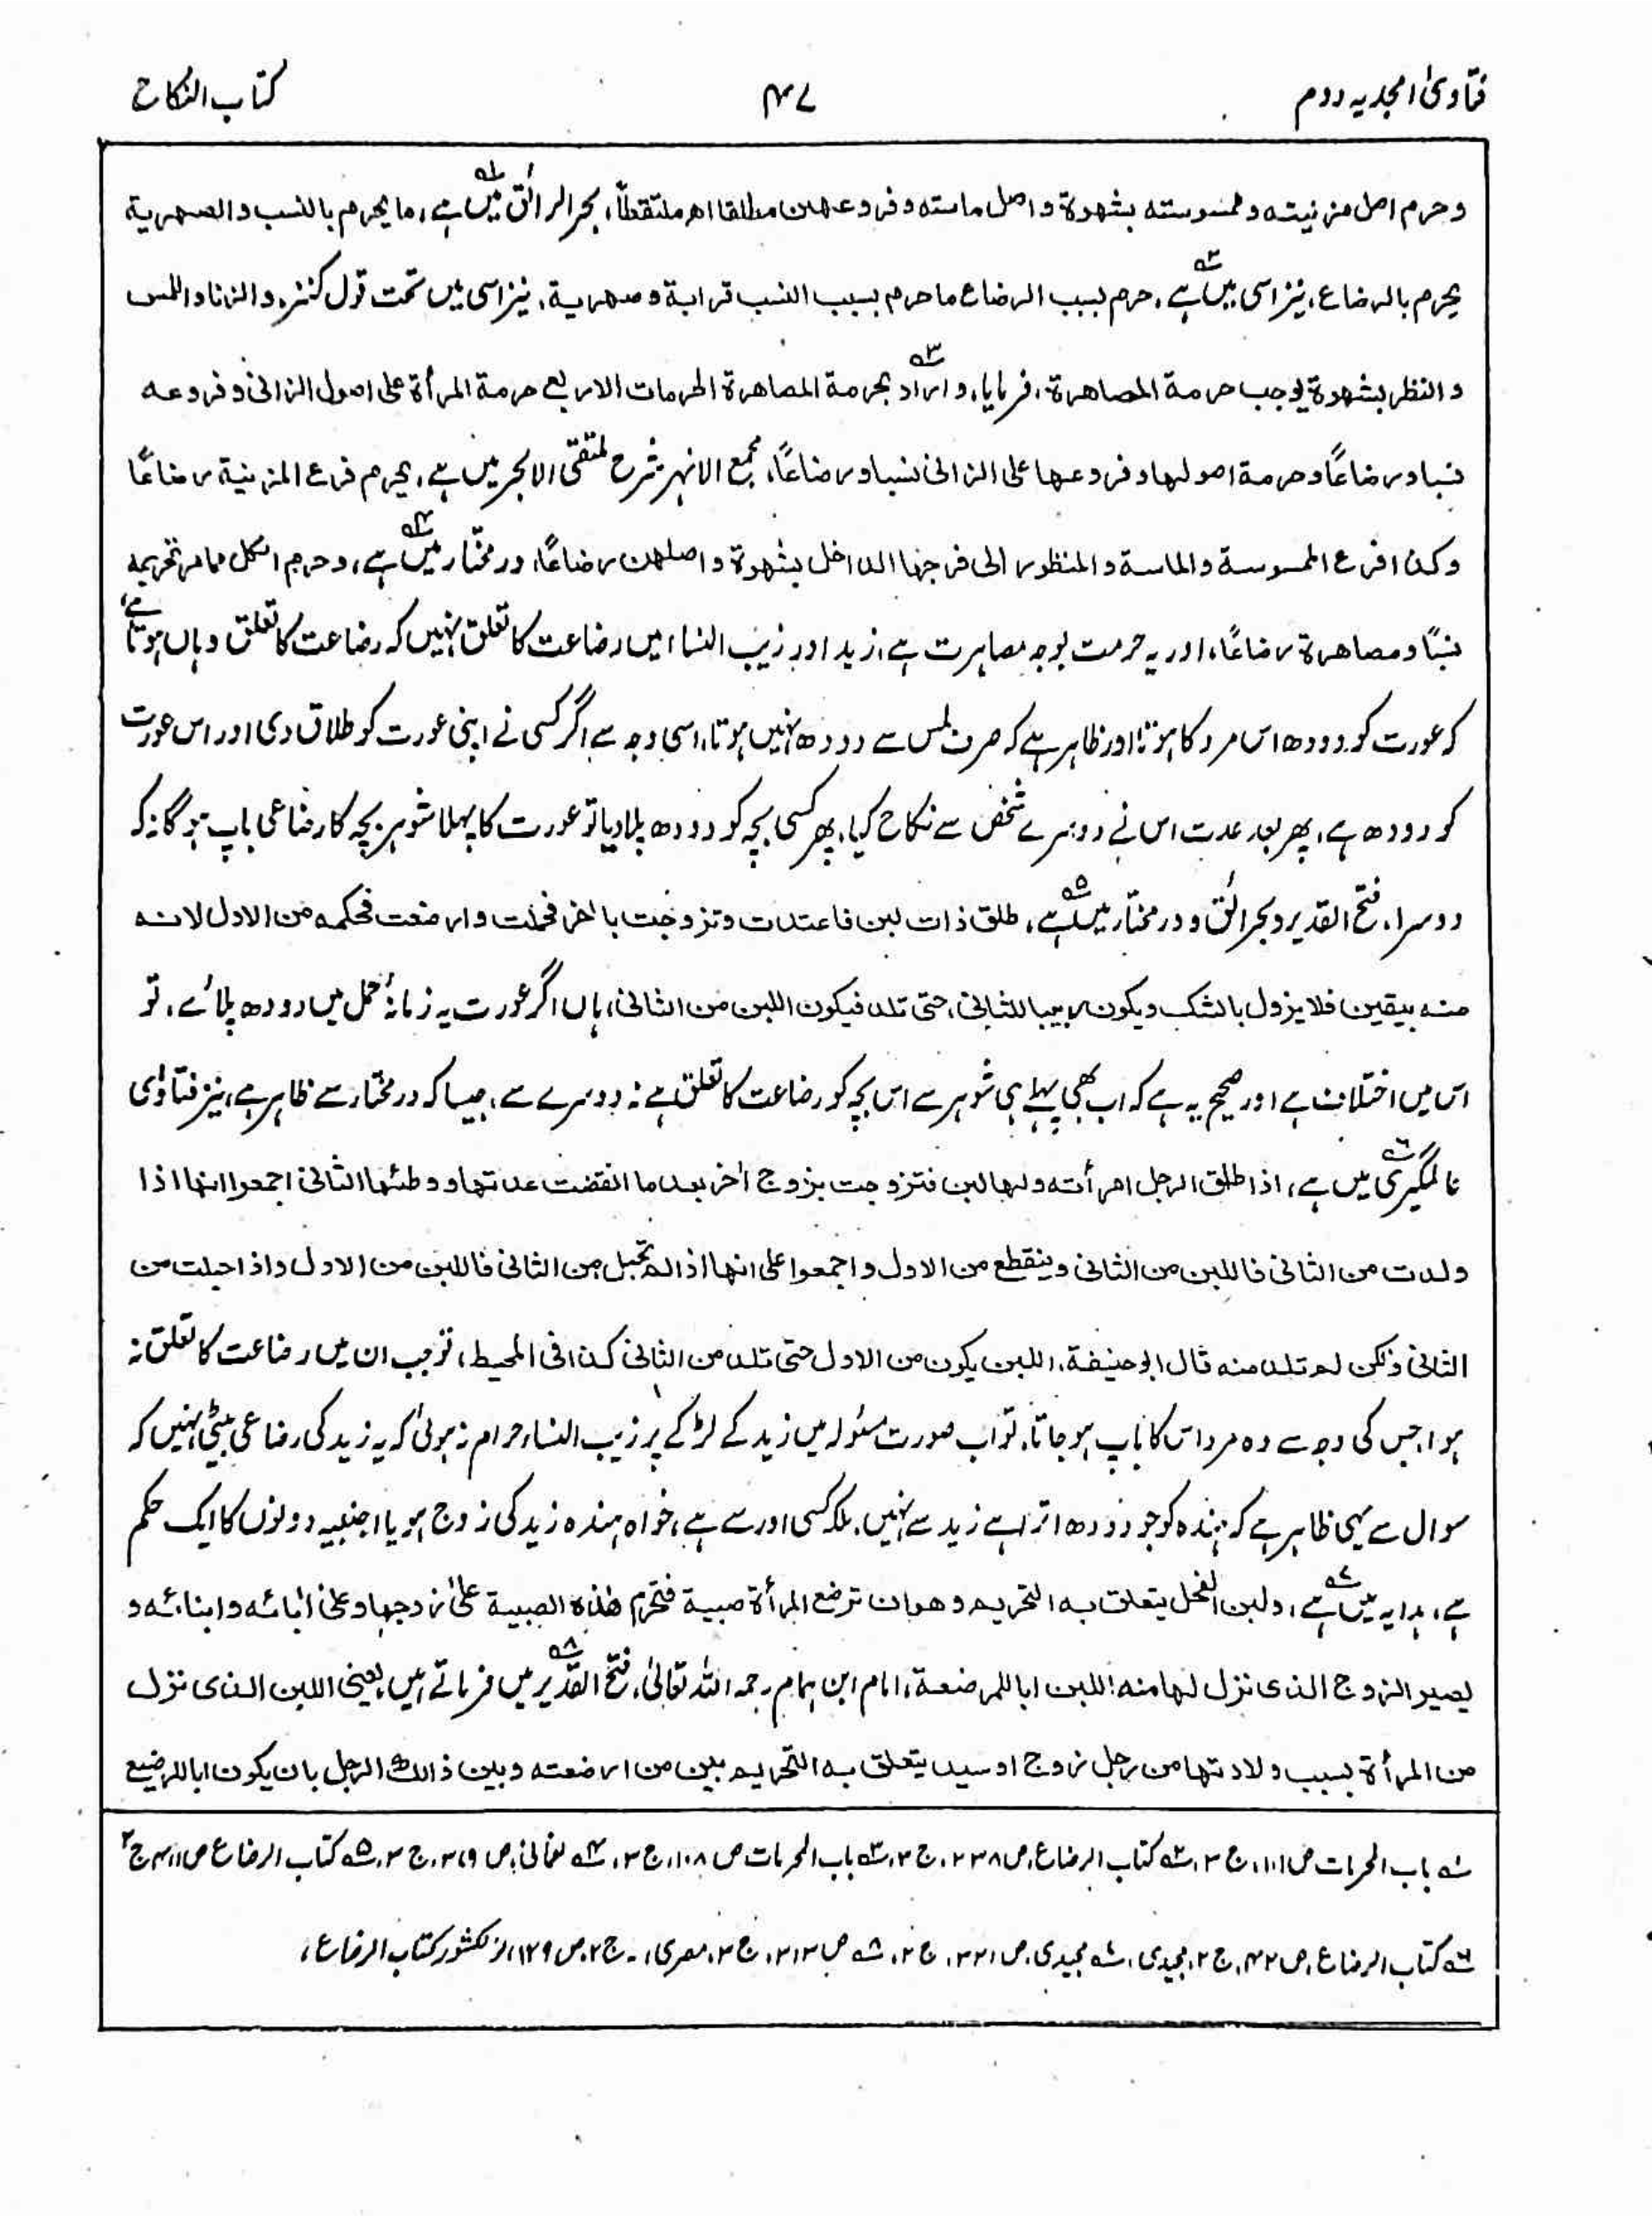 فتاویٰ امجدیہ دوم
۴۷
کتاب النکاح
وحرم اصل مزنیتہ وممسوستہ بشھوة واصل ماستہ وفروعھن مطلقا اھ ملتقطاً، بحر الرائق میں ہے، ما یحرم بالنسب والصھریة
یحرم بالرضاع، نیز اسی میں ہے، حرم بسبب الرضاع ما حرم بسبب النسب قرابة وصھریة، نیز اسی میں تحت قول کنز، والزنا واللمس
والنظر بشھوة یوجب حرمة المصاھرة، فرمایا، واراد بحرمة المصاھرة الحرمات الاربع حرمة المرأة علی اصول الزانی وفروعہ
نسبا ورضاعًا وحرمة اصولھا وفروعھا علی الزانی نسبا ورضاعًا، مجمع الانہر شرح ملتقی الابحر میں ہے، یحرم فرع المزنیة رضاعًا
وکذا فرع الممسوسة والماسة والمنظور الی فرجھا الداخل بشھوة واصلھن رضاعًا، درمختار میں ہے، وحرم الکل مما مر تحریمہ
نسبًا ومصاھرة رضاعًا، اور یہ حرمت بوجہ مصاہرت ہے، زید اور زیب النساء میں رضاعت کا تعلق نہیں کہ رضاعت کا تعلق وہاں ہوتا ہے
کہ عورت کو دودھ اس مرد کا ہوتا اور ظاہر ہے کہ صرف لمس سے دودھ نہیں ہوتا، اسی وجہ سے اگر کسی نے اپنی عورت کو طلاق دی اور اس عورت
کو دودھ ہے، پھر بعد عدت اس نے دوسرے شخص سے نکاح کیا، پھر کسی بچہ کو دودھ پلا دیا تو عورت کا پہلا شوہر بچہ کا رضاعی باپ ہوگا نہ کہ
دوسرا، فتح القدیر وبحر الرائق ودرمختار میں ہے، طلق ذات لبن فاعتدت وتزوجت بآخر فحملت وارضعت فحکمہ من الاول لانہ
منہ بیقین فلا یزول بالشک ویکون ربیبا للثانی، حتی تلد فیکون اللبن من الثانی، ہاں اگر عورت یہ زمانۂ حمل میں دودھ پلائے، تو
اس میں اختلاف ہے اور صحیح یہ ہے کہ اب بھی پہلے ہی شوہر سے اس بچہ کو رضاعت کا تعلق ہے نہ دوسرے سے، جیسا کہ درمختار سے ظاہر ہے، نیز فتاوٰی
عالمگیری میں ہے، اذا طلق الرجل امرأتہ ولھا لبن فتزوجت بزوج اٰخر بعد ما انقضت عدتھا ووطئھا الثانی اجمعوا انھا اذا
ولدت من الثانی فاللبن من الثانی وینقطع من الاول واجمعوا علی انھا اذا لم تحبل من الثانی فاللبن من الاول واذا حبلت من
الثانی ولکن لم تلد منہ قال ابو حنیفة، اللبن یکون من الاول حتی تلد من الثانی کذا فی المحیط، تو جب ان میں رضاعت کا تعلق نہ
ہوا، جس کی وجہ سے وہ مرد اس کا باپ ہو جاتا، تو اب صورت مسئولہ میں زید کے لڑکے پر زیب النساء حرام نہ ہوئی کہ یہ زید کی رضاعی بیٹی نہیں کہ
سوال سے یہی ظاہر ہے کہ ہندہ کو جو دودھ اترا ہے زید سے نہیں، بلکہ کسی اور سے ہے، خواہ ہندہ زید کی زوج ہو یا اجنبیہ دونوں کا ایک حکم
ہے، ہدایہ میں ہے، ولبن الفحل یتعلق بہ التحریم وھو ان ترضع المرأة صبیة فتحرم ھٰذہ الصبیة علیٰ زوجھا وعلیٰ اٰبائہ وابنائہ و
یصیر الزوج الذی نزل لھا منہ اللبن ابا للمرضعة، امام ابن ہمام رحمہ اللہ تعالیٰ، فتح القدیر میں فرماتے ہیں، یعنی اللبن الذی نزل
من المرأة بسبب ولادتھا من رجل زوج او سید یتعلق بہ التحریم بین من ارضعتہ وبین ذالک الرجل بان یکون ابا للرضیع
۱ باب المحرمات ص ۱۰۱، ج ۳، ۲ کتاب الرضاع، ص ۲۳۸، ج ۳، ۳ باب المحرمات ص ۱۰۸، ج ۳، ۴ نعمانی، ص ۳۷۹، ج ۲، ۵ کتاب الرضاع ص ۴۱۱، ج ۲
۶ کتاب الرضاع، ص ۴۲، ج ۲، مجیدی، ۷ مجیدی، ص ۳۳۱، ج ۲، ۸ ص ۳۱۳، ج ۳، مصری، ۔ ج ۲، ص ۱۲۹، نولکشور کتاب الرضاع،